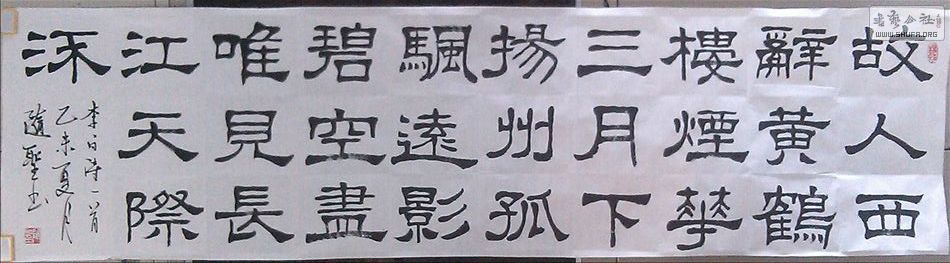 故人西
辭黃鶴
樓煙華
三月下
揚州孤
颿遠影
碧空盡
唯見長
江天際
流
李白诗一首
乙未夏月
隨聖书
书艺公社
WWW.SHUFA.ORG